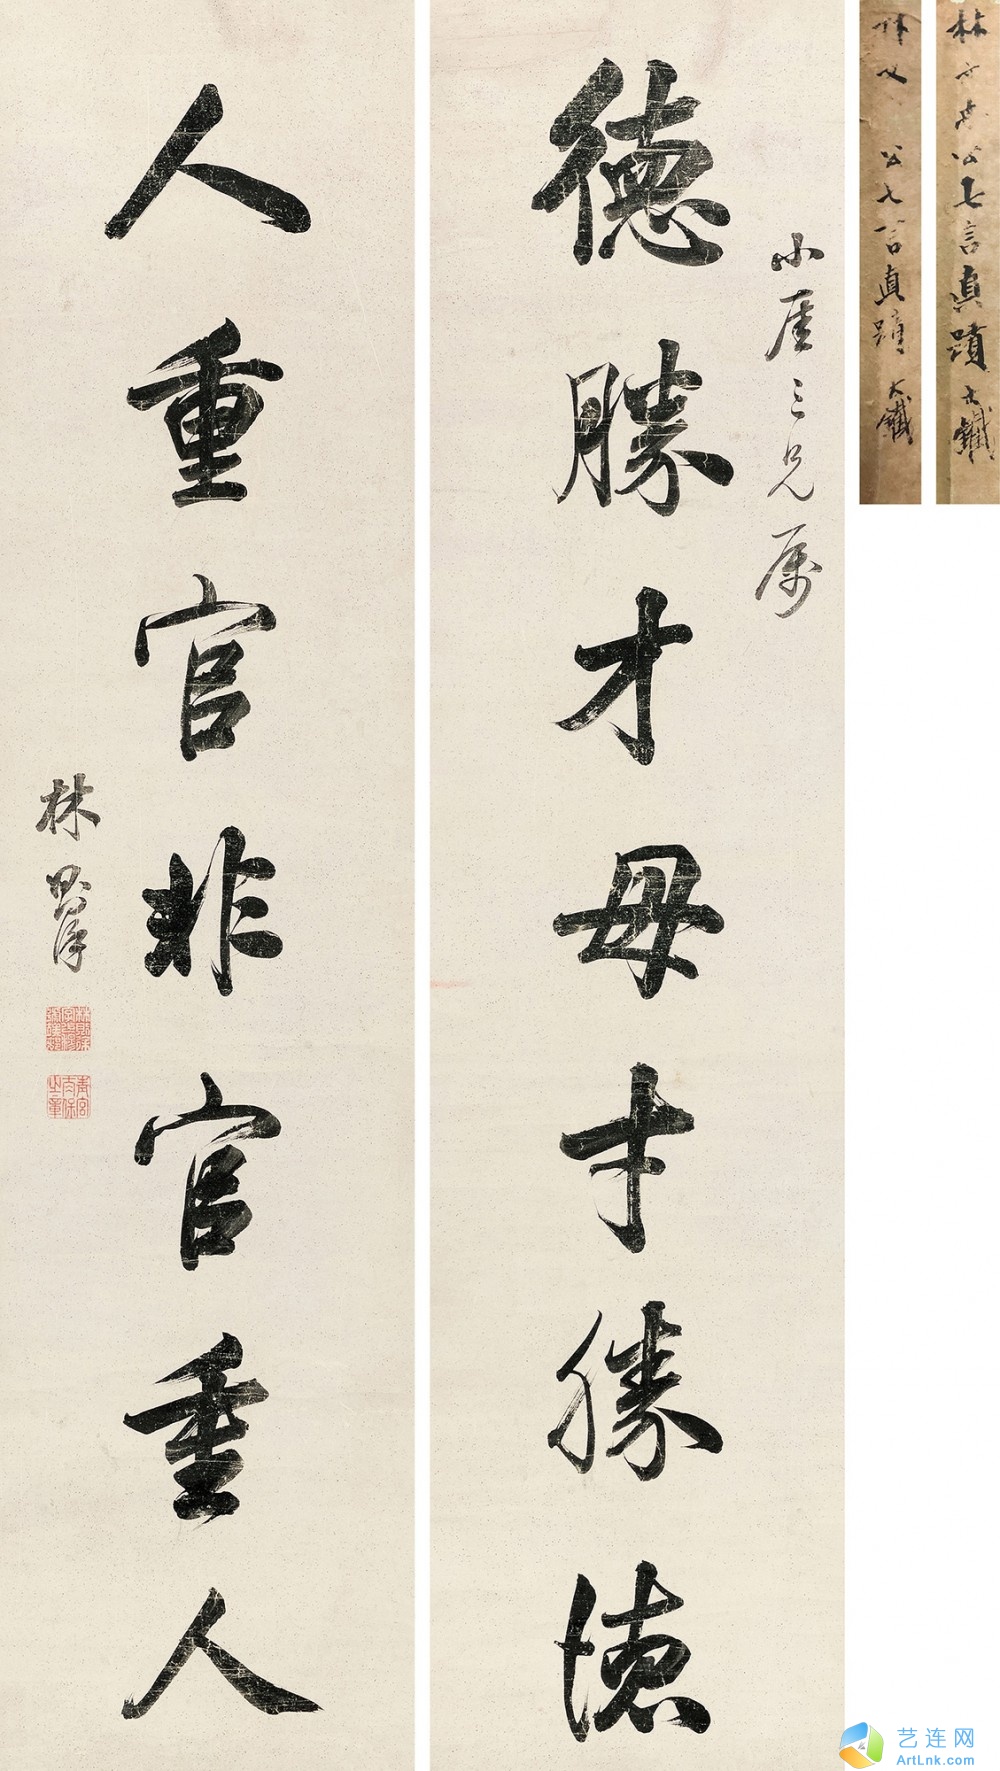 德勝才毋才勝德
小崖三兄属
人重官非官重人
林則徐
林則徐字少穆印
青宮太保之章
林文忠公七言真蹟 大鐵
林文 公七言真蹟 大鐵
艺连网
ArtLnk.com